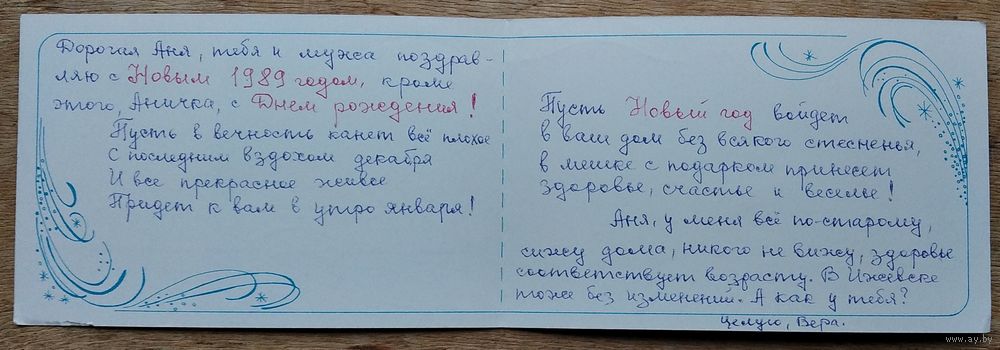 Дорогая Аня, тебя и мужа поздрав-
ляю с Новым 1989 годом, кроме
этого, Аничка, с Днем рождения!
Пусть в вечность канет всё плохое
С последним вздохом декабря
И все прекрасное живое
Придет к вам в утро января!
Пусть Новый год войдет
в ваш дом без всякого стесненья,
в мешке с подарком принесет
здоровье, счастье и веселье!
Аня, у меня всё по-старому,
сижу дома, никого не вижу, здоровье
соответствует возрасту. В Ижевске
тоже без изменений. А как у тебя?
Целую, Вера.
www.ay.by